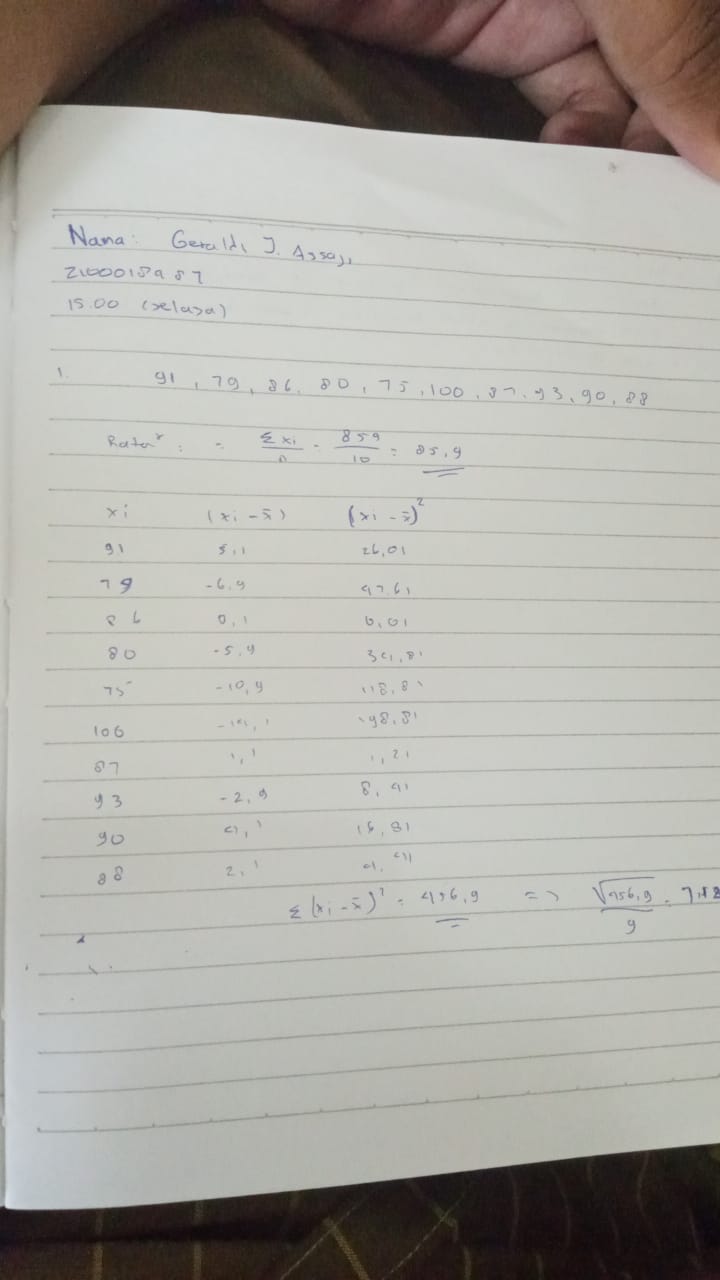 Nama: Geraldi J. Assaji
2100018987
15.00 (selasa)
1. 91, 79, 86, 80, 75, 100, 87, 93, 90, 88
Rata² : = Σxi/n = 859/10 = 85,9
xi (xi - x̄) (xi - x̄)²
91 5,1 26,01
79 -6,9 47,61
86 0,1 0,01
80 -5,9 34,81
75 -10,9 118,81
100 -14,1 198,81
87 1,1 1,21
93 -2,9 8,41
90 4,1 16,81
88 2,1 4,41
Σ(xi - x̄)² = 456,9 => √456,9/9 = 7,12